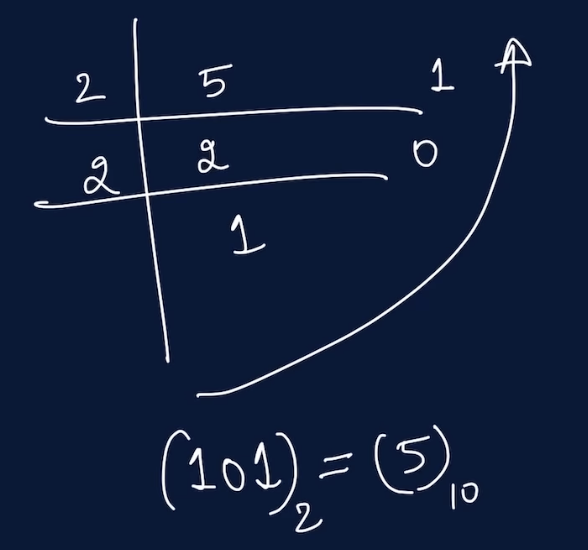 2 5 1
2 2 0
1
(101)₂ = (5)₁₀